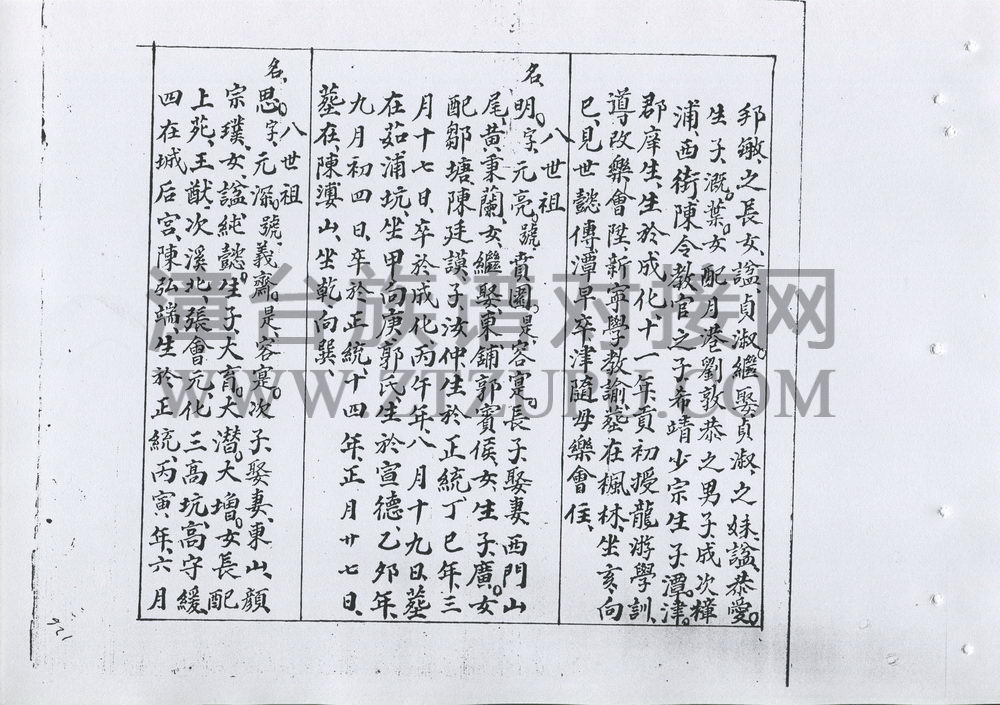 邦敏、之長女、諡貞淑。繼娶貞淑、之妹、諡恭愛。
生子、溉。葉。女配月港劉敦恭之男子、成次樟
浦、西街、陳令教官之子希靖少宗生子潭、津。
郡庠生、生於成化、十一年貢初授龍游學訓、
導改樂會陞、新寧學教諭墓在楓林、坐亥、向
巳、見世懿傳、潭早卒、津隨母樂會住、
八世祖
名、明。字、元亮。號、賁園。是、容寔。長子娶妻西門山
尾黃秉蘭女、繼娶、東鋪郭賓侯、女、生子、廣。女
配鄒塘、陳廷謨、子、汝仲生於正統丁巳年、三
月十七日、卒於成化、丙午年、八月十九日、墓
在茹浦坑、坐甲向庚郭氏、生於宣德、乙夘年、
九月初四日、卒於正統、十四年正月廿七日、
墓在、陳山、坐乾、向巽、
八世祖
名、思。字、元深。號、義齋。是、容寔。次子娶妻、東山、顏
宗璞、女、諡純懿。生子、大育。大潛。大增。女長配
上苑、王猷、次溪北、張會元、化三高坑、高守緩、
四在城后宮、陳弘端、生於正統、丙寅、年、六月
澶台族谱对接网
WWW.ZTZUPU.COM